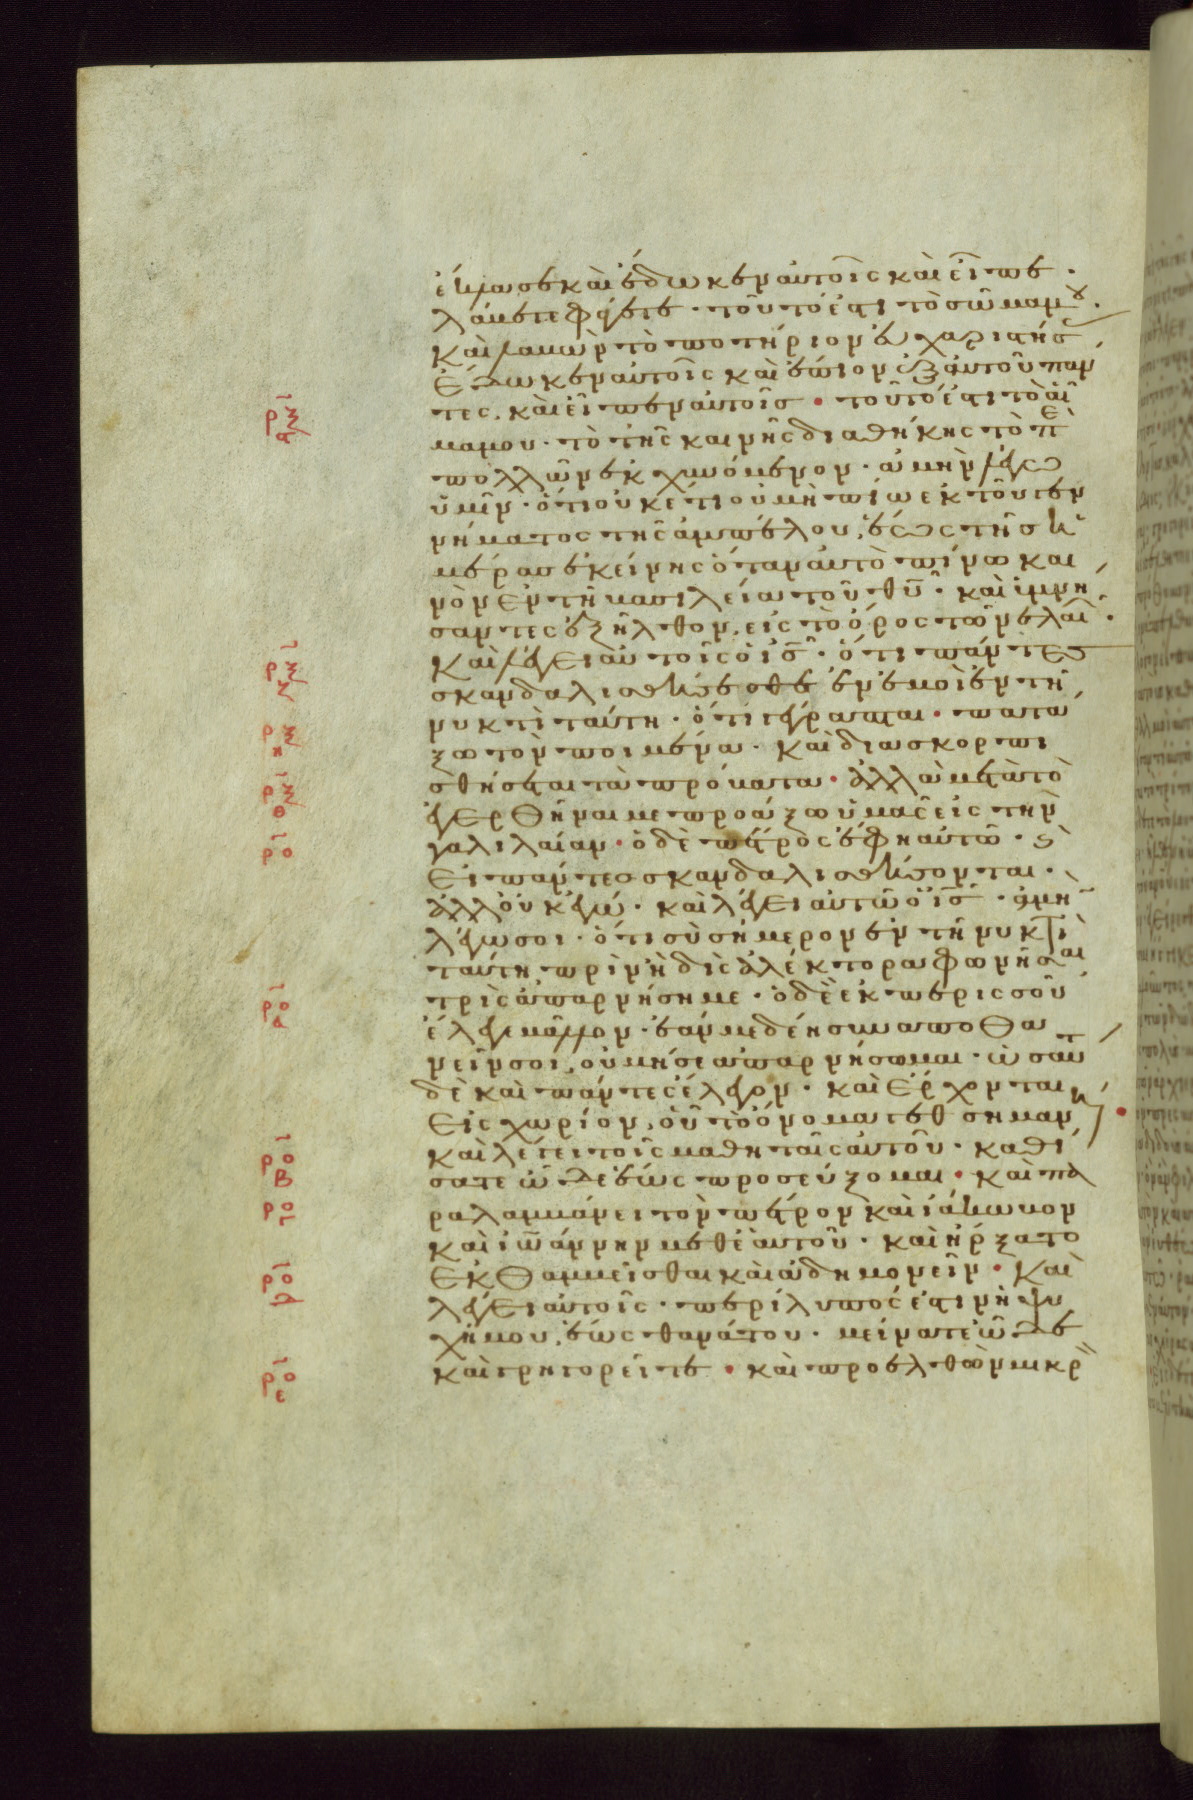 ἔκλασε καὶ ἔδωκεν αὐτοῖς καὶ εἶπε ·
λάβετε φάγετε · τοῦτό ἐστι τὸ σῶμα μου ·
καὶ λαβὼν τὸ ποτήριον εὐχαριστήσας
ἔδωκεν αὐτοῖς καὶ ἔπιον ἐξ αὐτοῦ πάν
τες, καὶ εἶπεν αὐτοῖς · τοῦτό ἐστι τὸ αἷ
μα μου · τὸ τῆς καινῆς διαθήκης τὸ πε
πολλῶν ἐκχυνόμενον · ἀμὴν λέγω
ὑμῖν · ὅτι οὐκέτι οὐ μὴ πίω ἐκ τοῦ γεν
νήματος τῆς ἀμπέλου, ἕως τῆς ἡ
μέρας ἐκείνης ὅταν αὐτὸ πίνω και
νὸν ἐν τῇ βασιλείᾳ τοῦ θῦ · καὶ ὑμνή
σαντες ἐξῆλθον, εἰς τὸ ὄρος τῶν ἐλαι ·
καὶ λέγει αὐτοῖς ὁ ἰς · ὅτι πάντες
σκανδαλισθήσεσθε ἐν ἐμοὶ ἐν τῇ
νυκτὶ ταύτῃ · ὅτι γέγραπται · πατά
ξω τὸν ποιμένα · καὶ διασκορπι
σθήσεται τὰ πρόβατα · ἀλλὰ μετὰ τὸ
ἐγερθῆναι με προάξω ὑμᾶς εἰς τὴν
γαλιλαίαν · ὁ δὲ πέτρος ἔφη αὐτῷ · καὶ
εἰ πάντες σκανδαλισθήσονται ·
ἀλλ' οὐκ ἐγώ · καὶ λέγει αὐτῷ ὁ ἰς · ἀμὴν
λέγω σοι · ὅτι σὺ σήμερον ἐν τῇ νυκτὶ
ταύτῃ πρὶν ἢ δὶς ἀλέκτορα φωνῆσαι
τρὶς ἀπαρνήσῃ με · ὁ δὲ ἐκ περισσοῦ
ἔλεγε μᾶλλον · ἐάν με δέῃ συναποθα
νεῖν σοι, οὐ μή σε ἀπαρνήσωμαι · ὡσαύτ
δὲ καὶ πάντες ἔλεγον · καὶ ἔρχονται
εἰς χωρίον, οὗ τὸ ὄνομα γεθσημανῆ
καὶ λέγει τοῖς μαθηταῖς αὐτοῦ · καθί
σατε ὧδε ἕως προσεύξομαι · καὶ πα
ραλαμβάνει τὸν πέτρον καὶ ἰάκωβον
καὶ ἰωάννην μεθ' ἑαυτοῦ · καὶ ἤρξατο
ἐκθαμβεῖσθαι καὶ ἀδημονεῖν · καὶ
λέγει αὐτοῖς · περίλυπός ἐστιν ἡ ψυ
χή μου, ἕως θανάτου · μείνατε ὧδε
καὶ γρηγορεῖτε · καὶ προελθὼν μικρ